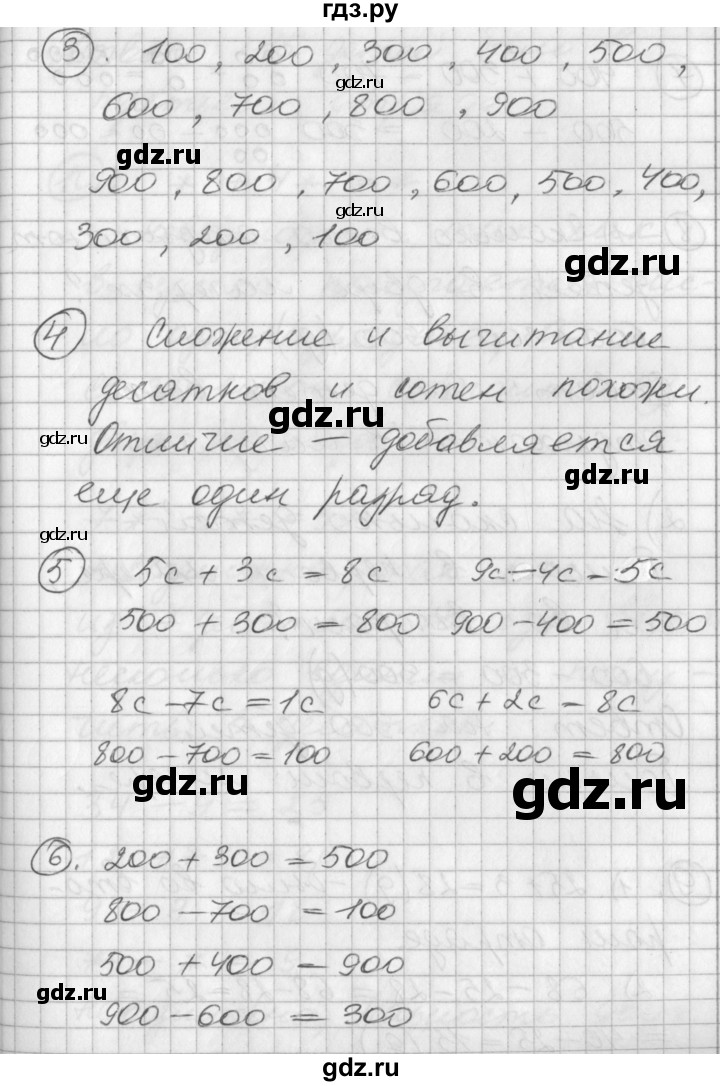 гдз.ру
3. 100, 200, 300, 400, 500,
600, 700, 800, 900
900, 800, 700, 600, 500, 400,
300, 200, 100
4 Сложение и вычитание
десятков и сотен похожи.
Отличие — добавляется
еще один разряд.
5 5с + 3с = 8с 9с - 4с = 5с
500 + 300 = 800 900 - 400 = 500
8с - 7с = 1с 6с + 2с = 8с
800 - 700 = 100 600 + 200 = 800
6. 200 + 300 = 500
800 - 700 = 100
500 + 400 = 900
900 - 600 = 300
gdz.ru
gdz.ru
gdz.ru
gdz.ru
gdz.ru
gdz.ru
gdz.ru
gdz.ru
gdz.ru
gdz.ru
gdz.ru
gdz.ru
gdz.ru
gdz.ru